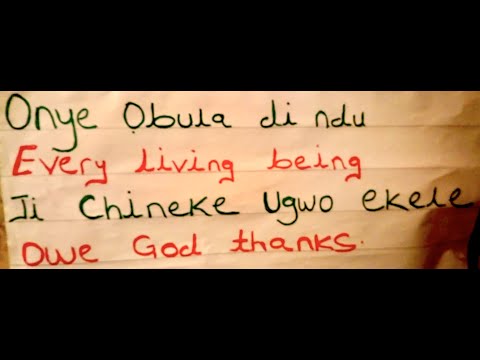 Onye Ọbula di ndu
Every living being
Ji Chineke Ugwo ekele
Owe God thanks.